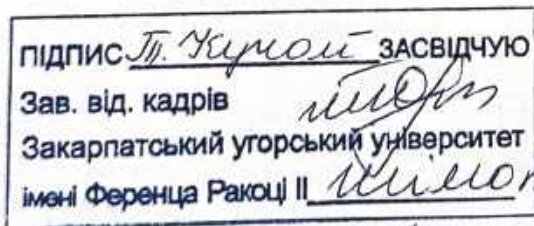 ПІДПИС Т. Кучай ЗАСВІДЧУЮ
Зав. від. кадрів
Закарпатський угорський університет
імені Ференца Ракоці ІІ